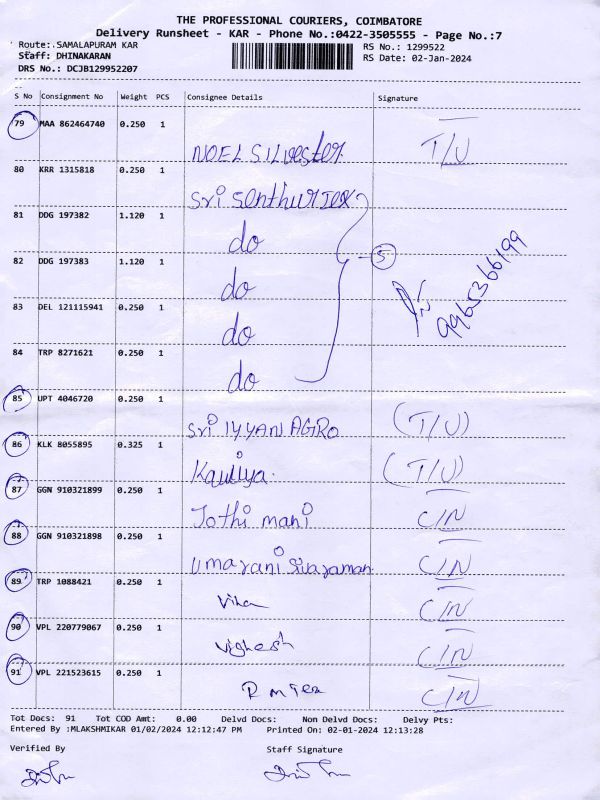 THE PROFESSIONAL COURIERS, COIMBATORE
Delivery Runsheet - KAR - Phone No.:0422-3505555 - Page No.:7
Route:.SAMALAPURAM KAR RS No.: 1299522
Staff: DHINAKARAN RS Date: 02-Jan-2024
DRS No.: DCJB129952207
S No Consignment No Weight PCS Consignee Details Signature
79 MAA 862464740 0.250 1 NOEL SILvester T/U
80 KRR 1315818 0.250 1 Sri Senthur Tex
81 DDG 197382 1.120 1 do
82 DDG 197383 1.120 1 do 5 9965366199
83 DEL 121115941 0.250 1 do
84 TRP 8271621 0.250 1 do
85 UPT 4046720 0.250 1 Sri IYYAN AGRO (T/U)
86 KLK 8055895 0.325 1 (T/U)
87 GGN 910321899 0.250 1 Jothi mani C/N
88 GGN 910321898 0.250 1 Umarani Sivaraman C/N
89 TRP 1088421 0.250 1 C/N
90 VPL 220779067 0.250 1 Vighesh C/N
91 VPL 221523615 0.250 1 C/N
Tot Docs: 91 Tot COD Amt: 0.00 Delvd Docs: Non Delvd Docs: Delvy Pts:
Entered By :MLAKSHMIKAR 01/02/2024 12:12:47 PM Printed On: 02-01-2024 12:13:28
Verified By Staff Signature